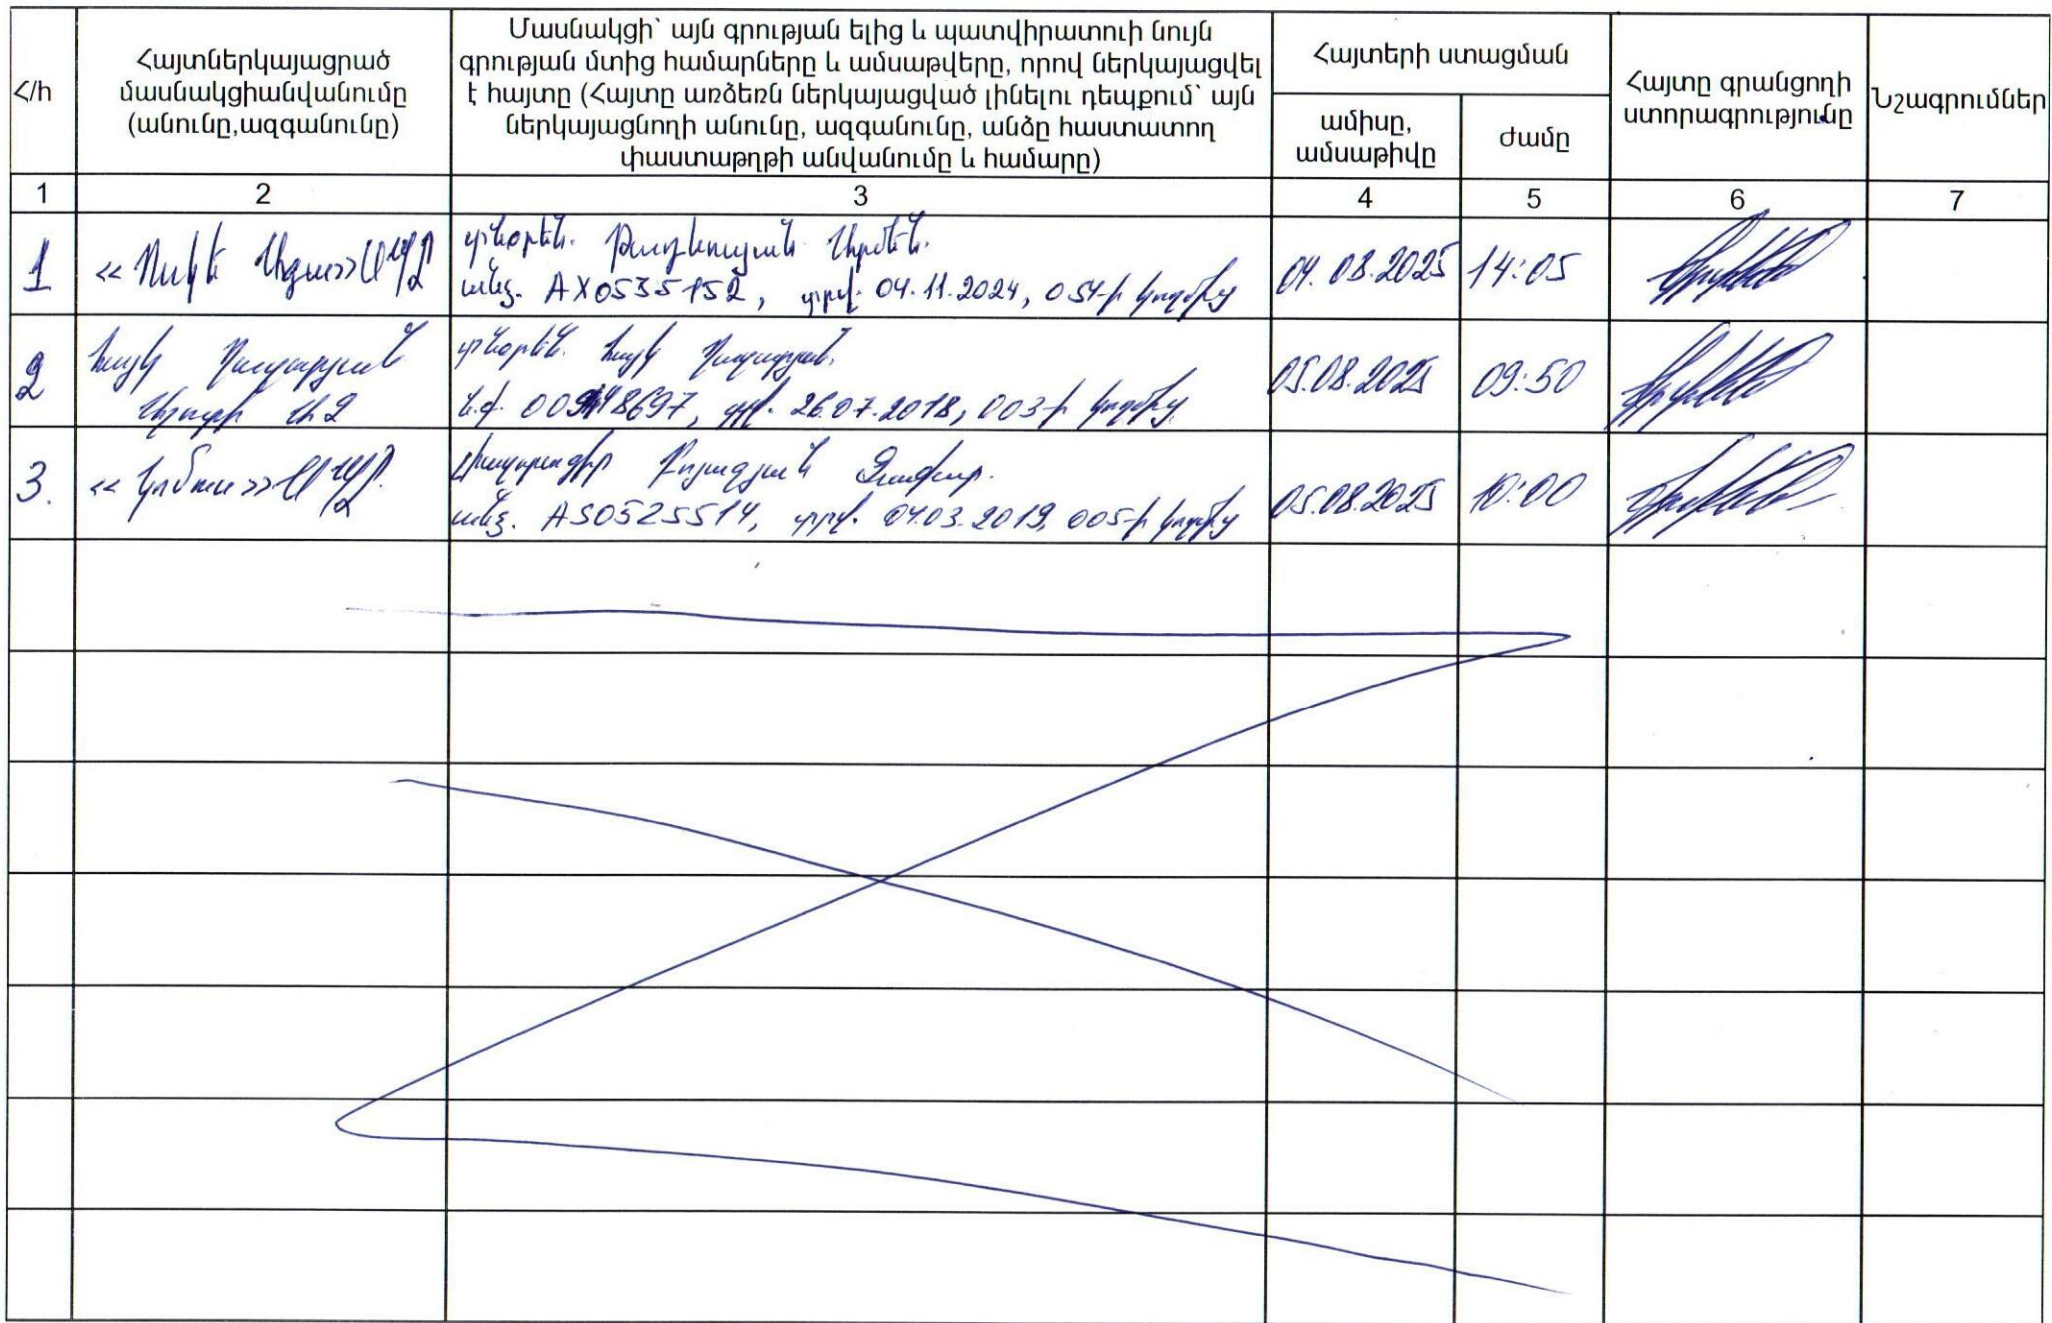 Հ/հ
Հայտներկայացրած
մասնակցիանվանումը
(անունը,ազգանունը)
Մասնակցի՝ այն գրության ելից և պատվիրատուի նույն
գրության մտից համարները և ամսաթվերը, որով ներկայացվել
է հայտը (Հայտը առձեռն ներկայացված լինելու դեպքում՝ այն
ներկայացնողի անունը, ազգանունը, անձը հաստատող
փաստաթղթի անվանումը և համարը)
Հայտերի ստացման
ամիսը,
ամսաթիվը
ժամը
Հայտը գրանցողի
ստորագրությունը
Նշագրումներ
1 2 3 4 5 6 7
1
«Ոսկե Սպա» ՍՊԸ
տնօրեն. Արմեն.
անձ. AX0535152, տրվ. 04.11.2024, 054-ի կողմից
04.08.2025
14:05
2
Հայկ Ղազարյան
տնօրեն. Հայկ Ղազարյան.
26.07.2018, 003-ի կողմից
05.08.2025
09:50
3.
ՍՊԸ.
լիազորագիր
անձ. AS0525514, տրվ. 04.03.2019, 005-ի կողմից
05.08.2025
10:00